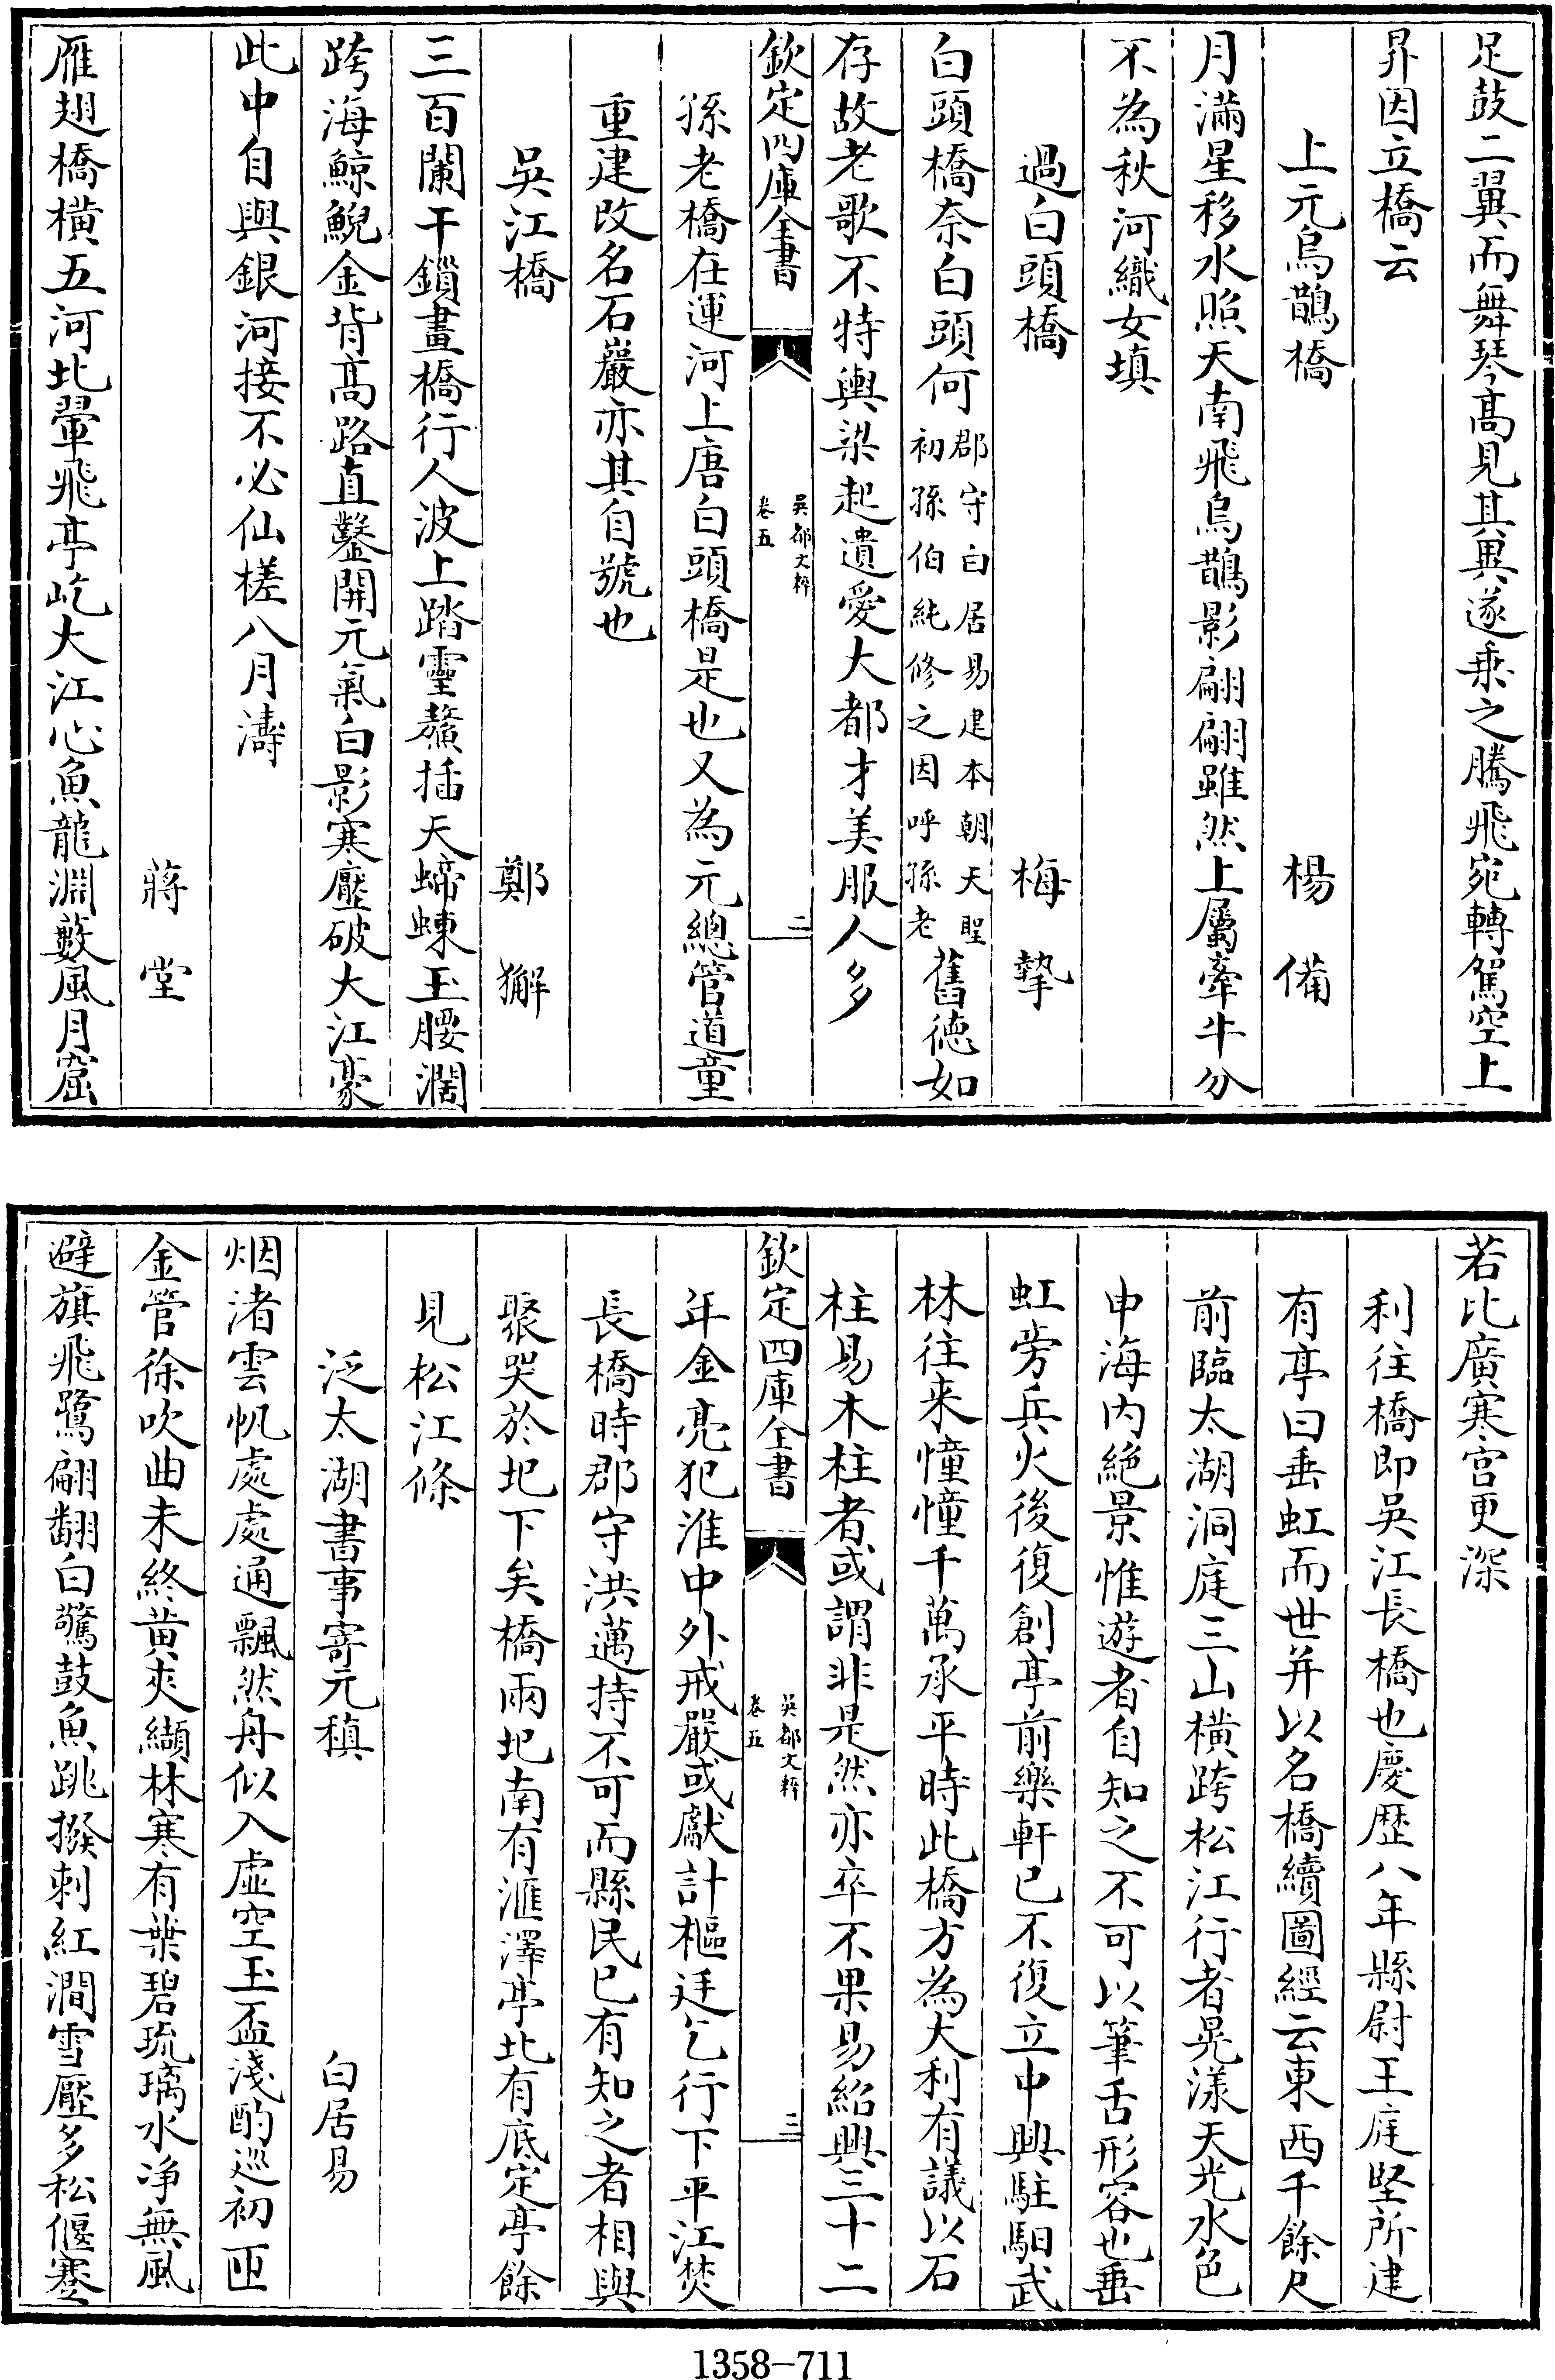 足鼓二翼而舞琴高見其異遂乘之騰飛宛轉駕空上
昇因立橋云
上元烏鵲橋　楊備
月滿星移水照天南飛烏鵲影翩翩雖然上屬牽牛分
不為秋河織女填
過白頭橋　梅摯
白頭橋奈白頭何郡守白居易建本朝天聖初孫伯純修之因呼孫老舊德如
存故老歌不特輿梁起遺愛大都才美服人多
欽定四庫全書　吳都文粹　卷五　二
孫老橋在運河上唐白頭橋是也又為元總管道童
重建改名石巖亦其自號也
吳江橋　鄭獬
三百闌干鎖畫橋行人波上踏靈鰲插天螮蝀玉腰濶
跨海鯨鯢金背高路直鑿開元氣白影寒壓破大江豪
此中自與銀河接不必仙槎八月濤
蔣堂
雁翅橋橫五河北翬飛亭屹大江心魚龍淵藪風月窟
若比廣寒宮更深
利往橋即吳江長橋也慶歷八年縣尉王庭堅所建
有亭曰垂虹而世并以名橋續圖經云東西千餘尺
前臨太湖洞庭三山橫跨松江行者晃漾天光水色
中海內絕景惟遊者自知之不可以筆舌形容也垂
虹旁兵火後復創亭前樂軒已不復立中興駐馹武
林往來憧憧千萬承平時此橋方為大利有議以石
柱易木柱者或謂非是然亦卒不果易紹興三十二
欽定四庫全書　吳都文粹　卷五　三
年金亮犯淮中外戒嚴或獻計樞廷乞行下平江焚
長橋時郡守洪邁持不可而縣民已有知之者相與
聚哭於圯下矣橋兩圯南有滙澤亭北有底定亭餘
見松江條
泛太湖書事寄元稹　白居易
烟渚雲帆處處通飄然舟似入虛空玉盃淺酌巡初匝
金管徐吹曲未終黄夾纈林寒有葉碧琉璃水净無風
避旗飛鷺翩翻白驚鼓魚跳撥刺紅澗雪壓多松偃蹇
1358-711